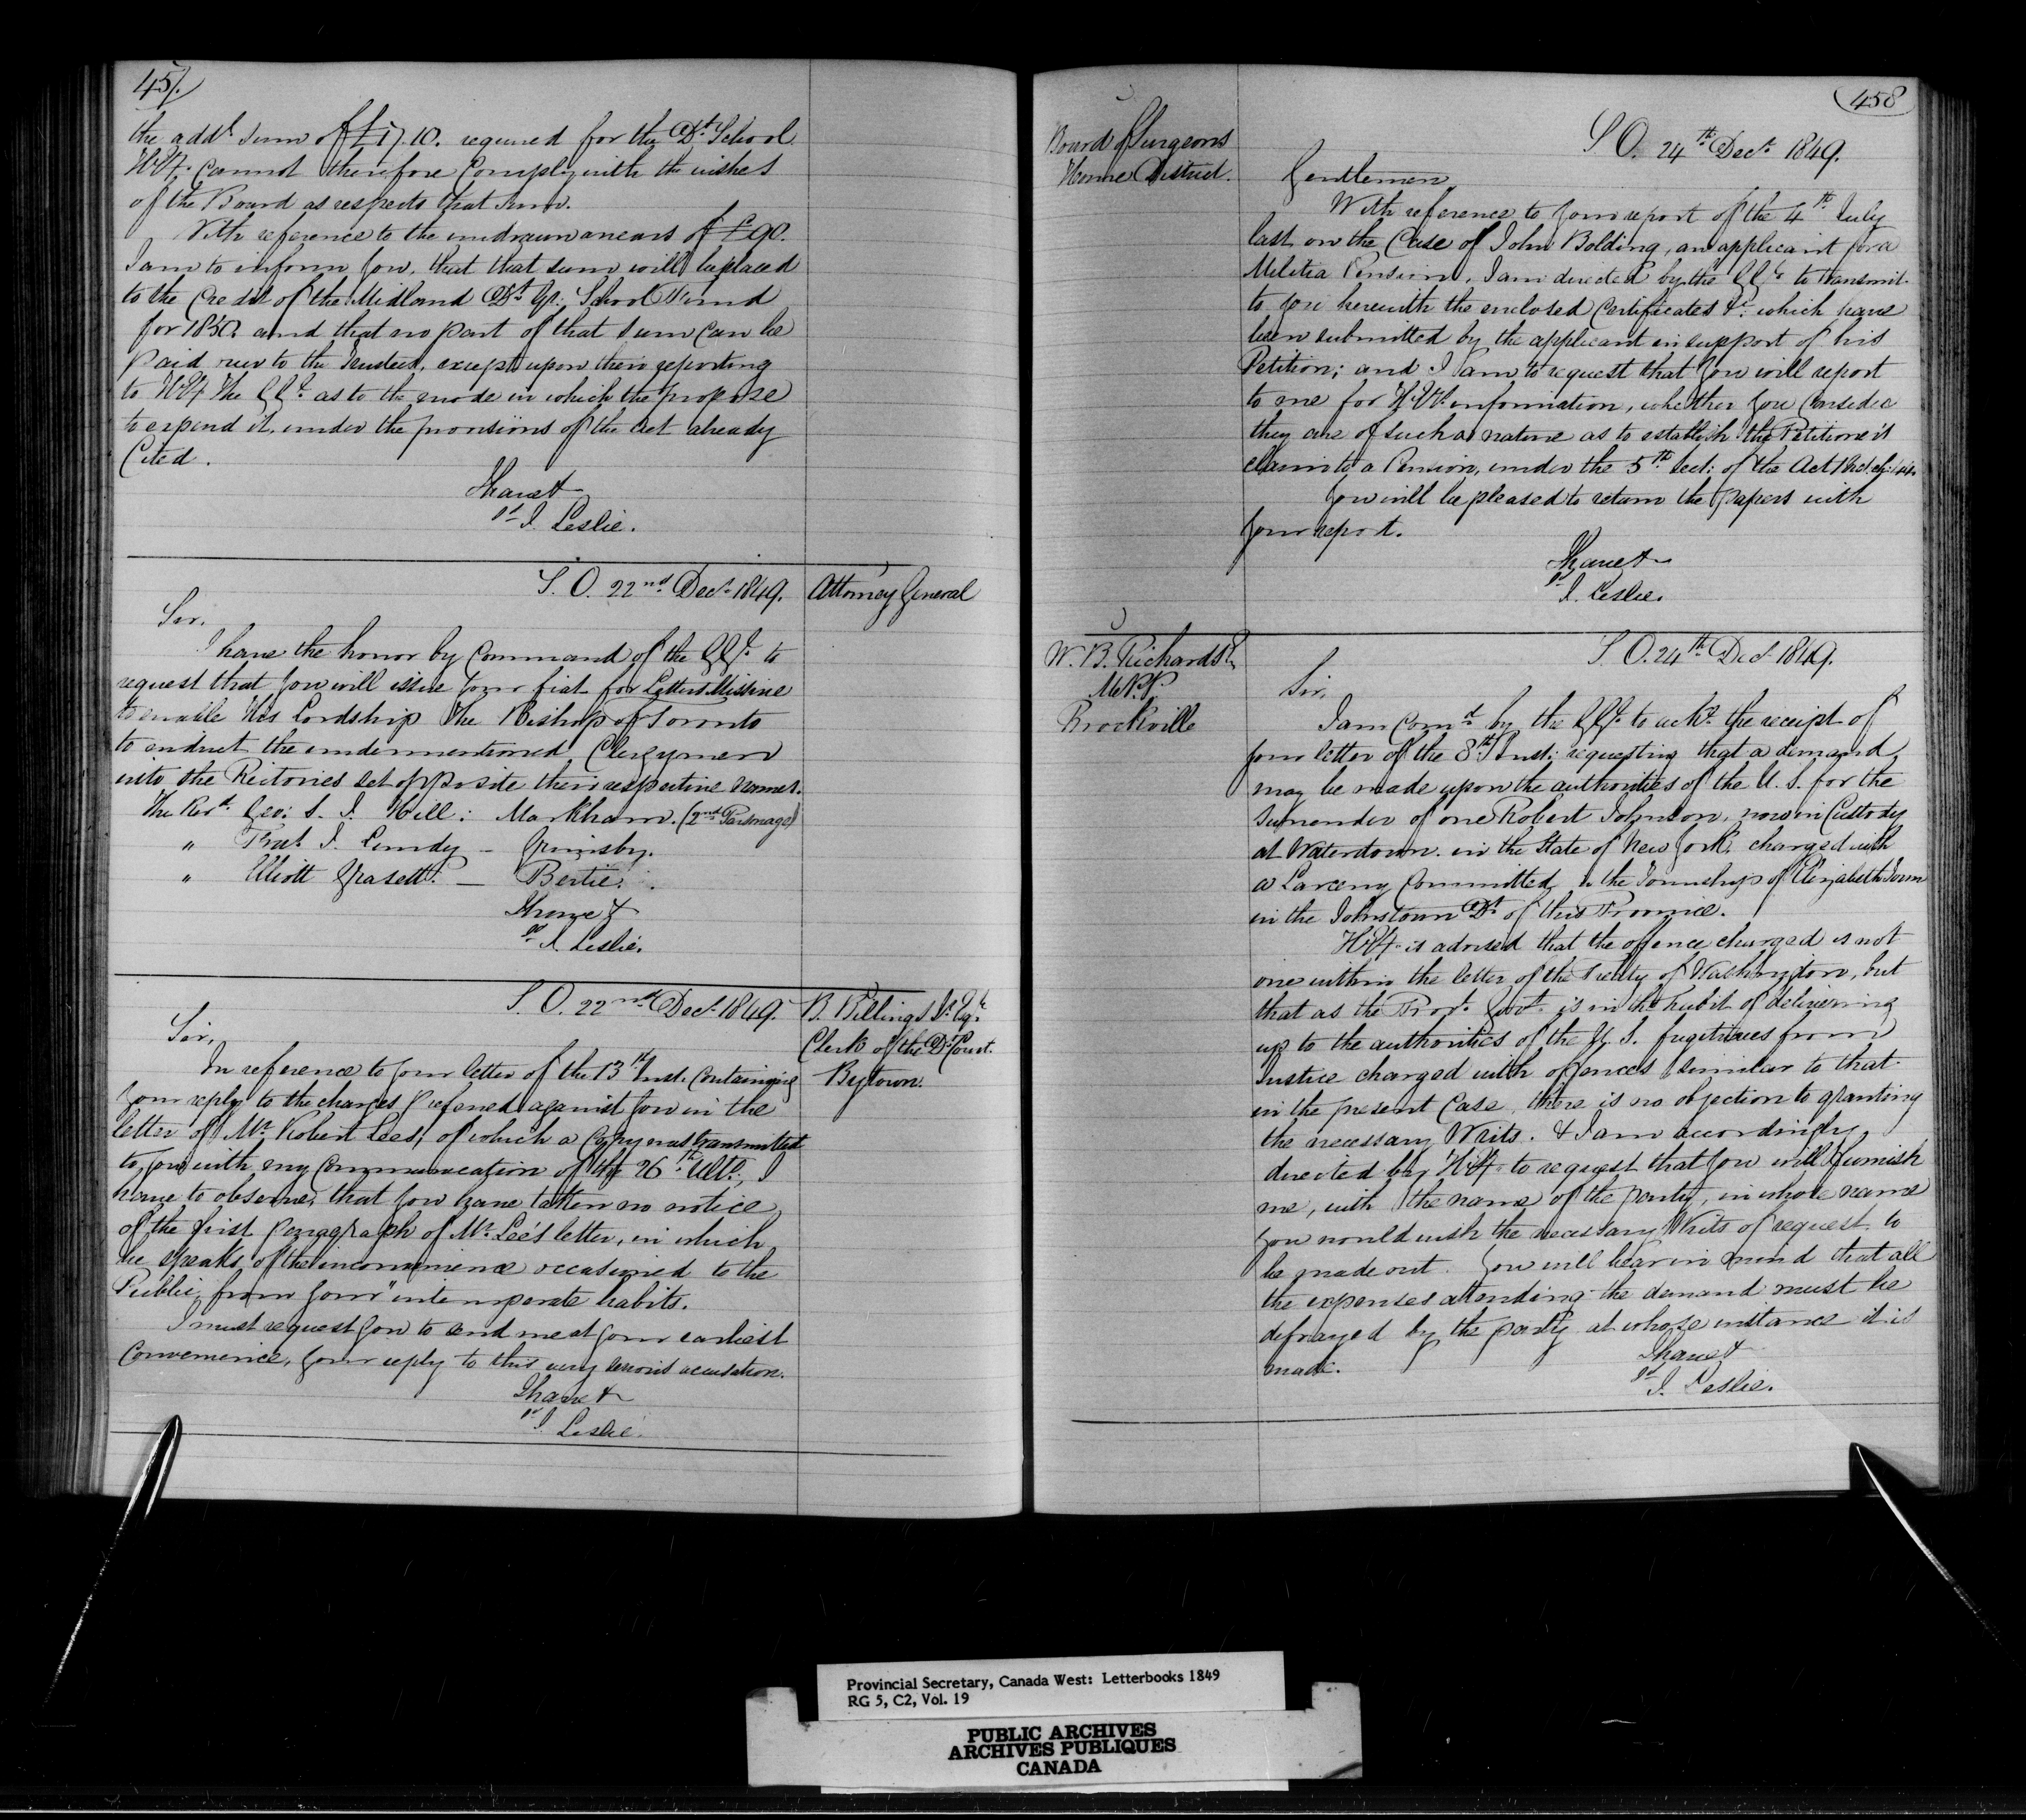 457.
the addl. sum of £17.10. required for the Dt. School
H.Ey. cannot therefore Comply with the wishes
of the Board as respects that sum.
With reference to the undrawn arrears of £90.
I am to inform you, that that sum will be placed
to the Credit of the Midland Dt. Gr. School Fund
for 1850. and that no part of that sum can be
paid over to the Trustees, except upon their reporting
to H.Ey The G.Gl. as to the mode in which the propose
to expend it, under the provisions of the act already
Cited.
I have &
sd. J. Leslie.
S. O. 22nd Decr. 1849.
Attorney General
Sir,
I have the honor by Command of the G.Gl. to
request that you will issue your fiat for Letters Missive
to enable His Lordship The Bishop of Toronto
to induct the undermentioned Clergymen
into the Rectories set opposite their respective names.
The Revd. Geo: S. J. Hill: Markham. (2nd Parsonage)
" Fras. J. Lundy — Grimsby.
" Elliott Grasett. — Bertie.
I have &
sd. J. Leslie.
S. O. 22nd Decr. 1849.
B. Billings Jr. Esqr.
Clerk of the D. Court.
Bytown.
Sir,
In reference to your letter of the 13th Inst. Containing
your reply to the charges preferred against you in the
letter of Mr. Robert Lees, of which a Copy was transmitted
to you with my Communication of the 26th Ulto., I
have to observe, that you have taken no notice
of the first paragraph of Mr. Lee's letter, in which
he speaks of the inconvenience occasioned to the
Public, from your "intemperate habits.
I must request you to send me at your earliest
Convenience, your reply to this very serious accusation.
I have &
sd. J. Leslie.
458
Board of Surgeons
Home District.
S. O. 24th Decr. 1849.
Gentlemen,
With reference to your report of the 4th July
last on the Case of John Bolding, an applicant for a
Militia Pension, I am directed by the G.Gl. to transmit
to you herewith the enclosed Certificates &c. which have
been submitted by the applicant in support of his
Petition; and I am to request that you will report
to me for H.Ey's. information, whether you Consider
they are of such a nature as to establish the Petitioner's
claim to a Pension, under the 5th Sect: of the Act
You will be pleased to return the papers with
your report.
I have &
sd. J. Leslie.
W. B. Richards Er.
M.P.P.
Brockville
S. O. 24th Decr. 1849.
Sir,
I am Comd. by the G.Gl. to ackn. the receipt of
your letter of the 8th Inst: requesting that a demand
may be made upon the authorities of the U. S. for the
surrender of one Robert Johnson, now in Custody
at Watertown in the State of New York, charged with
a Larceny Committed in the Township of Elizabeth Town
in the Johnstown Dt. of this Province.
H.Ey. is advised that the offence charged is not
one within the letter of the Treaty of Washington, but
that as the Provl. Govt. is in the habit of delivering
up to the authorities of the U. S. fugitives from
Justice charged with offences similar to that
in the present Case, there is no objection to granting
the necessary Writs. & I am accordingly
directed by H.Ey. to request that you will furnish
me, with the name of the party, in whose name
you would wish the necessary Writs of request to
be made out. You will bear in mind that all
the expenses attending the demand must be
defrayed by the party at whose instance it is
made.
I have &
sd. J. Leslie.
Provincial Secretary, Canada West: Letterbooks 1849
RG 5, C2, Vol. 19
PUBLIC ARCHIVES
ARCHIVES PUBLIQUES
CANADA